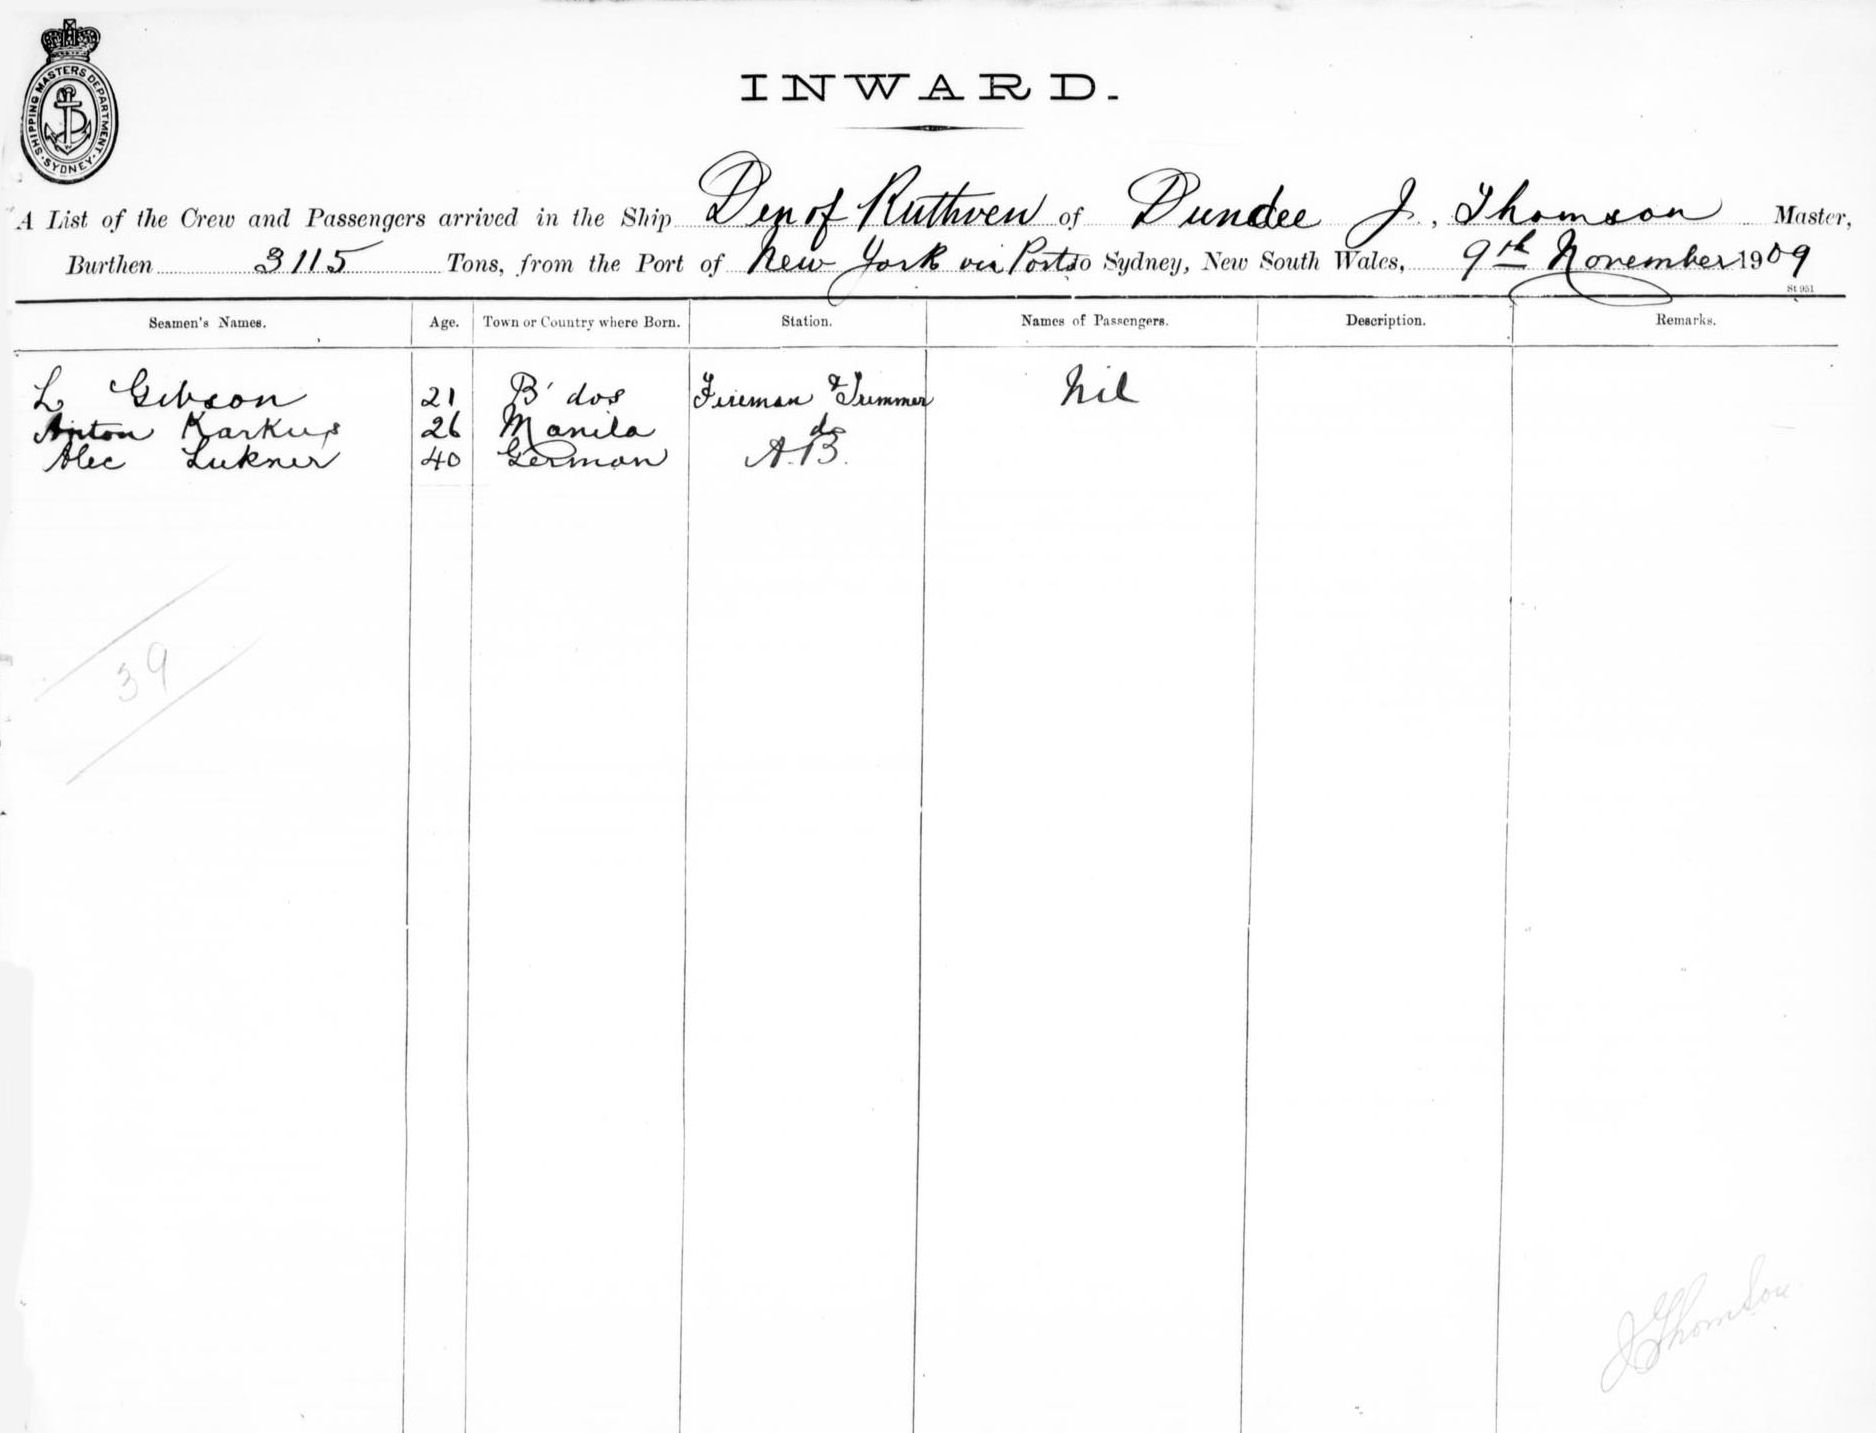 SHIPPING MASTERS DEPARTMENT. SYDNEY.
INWARD.
A List of the Crew and Passengers arrived in the Ship Den of Ruthven of Dundee J. Thomson Master,
Burthen 3115 Tons, from the Port of New York via Ports to Sydney, New South Wales, 9th November 1909
St 951
Seamen's Names. Age. Town or Country where Born. Station. Names of Passengers. Description. Remarks.
L Gibson 21 B'dos Fireman & Trimmer Nil
Anton Karkus 26 Manila do
Alec Lukner 40 German A.B.
39
J Thomson